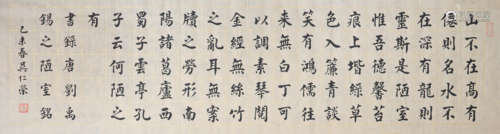 山不在高有
僊則名水不
在深有龍則
靈斯是陋室
惟吾德馨苔
痕上堦綠草
色入簾青談
笑有鴻儒往
來無白丁可
以調素琴閱
金經無絲竹
之亂耳無案
牘之勞形南
陽諸葛廬西
蜀子雲亭孔
子云何陋之
有
書錄唐劉禹
錫之陋室銘
己未春吳仁榮